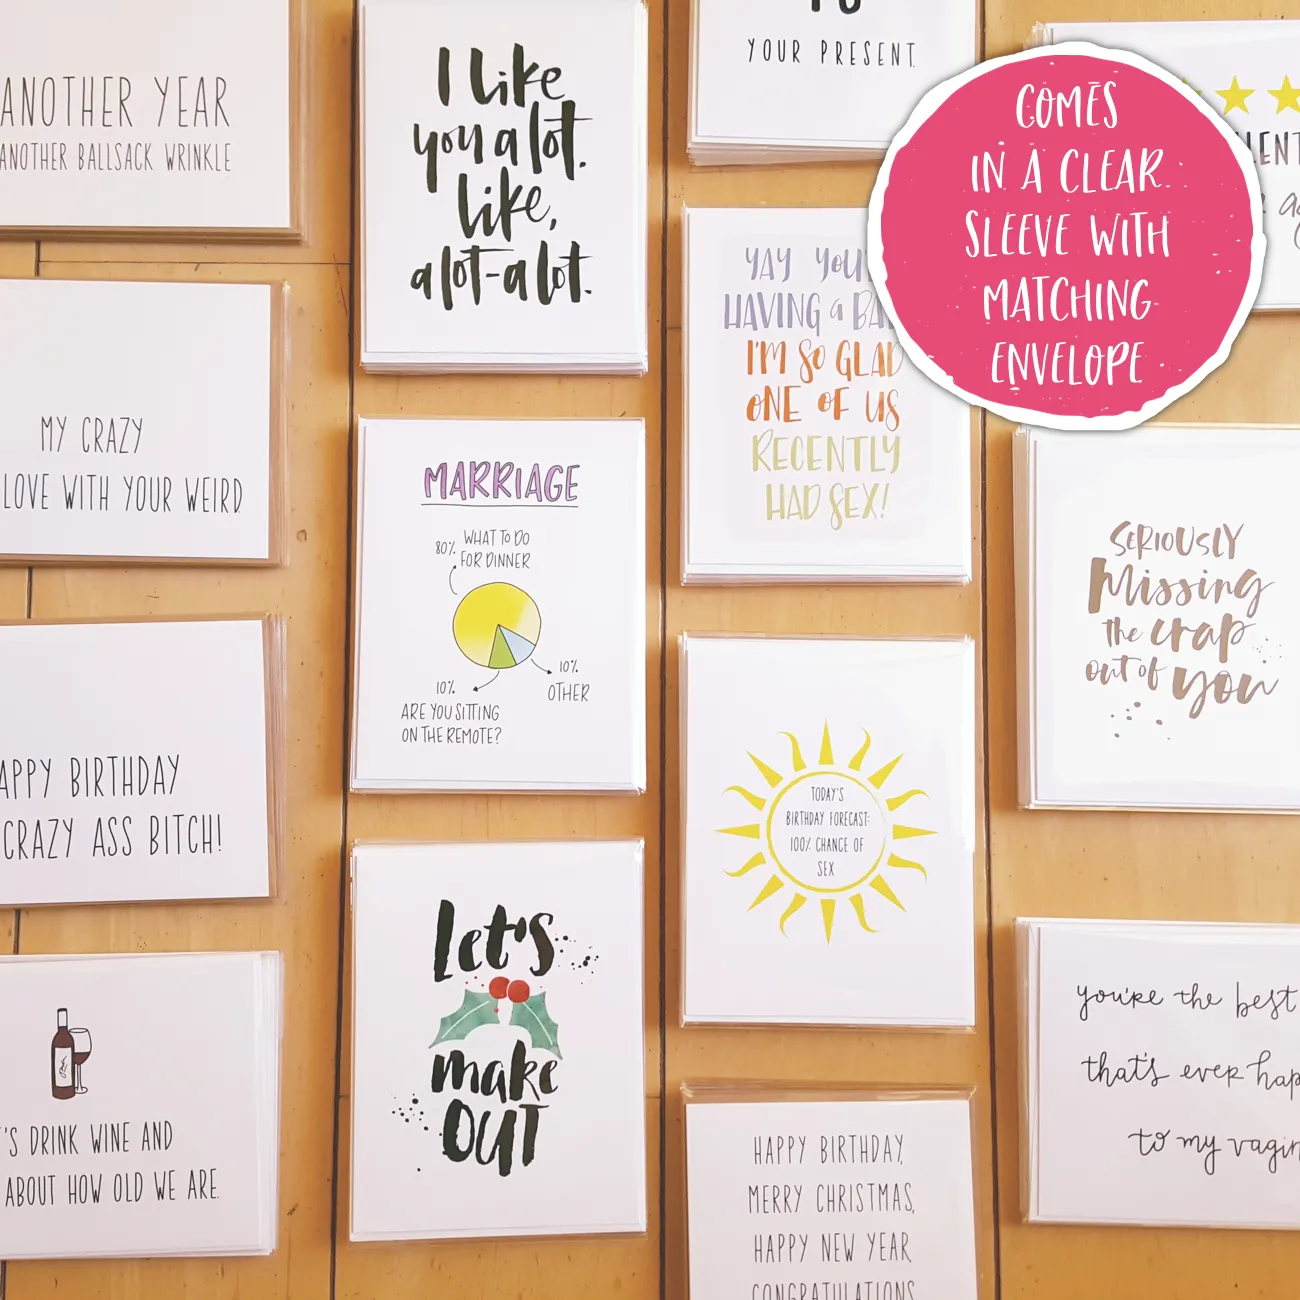 ANOTHER YEAR
ANOTHER BALLSACK WRINKLE
MY CRAZY
LOVE WITH YOUR WEIRD
APPY BIRTHDAY
CRAZY ASS BITCH!
'S DRINK WINE AND
ABOUT HOW OLD WE ARE.
I like
you a lot.
like,
a lot-a lot.
MARRIAGE
80% WHAT TO DO
FOR DINNER
10%
OTHER
10%
ARE YOU SITTING
ON THE REMOTE?
Let's
make
OUT
YOUR PRESENT.
YAY YOU'
HAVING a BA
I'M SO GLAD
ONE OF US
RECENTLY
HAD SEX!
TODAY'S
BIRTHDAY FORECAST:
100% CHANCE OF
SEX
HAPPY BIRTHDAY,
MERRY CHRISTMAS,
HAPPY NEW YEAR,
CONGRATULATIONS
COMES
IN A CLEAR
SLEEVE WITH
MATCHING
ENVELOPE
LENT
SERIOUSLY
Missing
the crap
out of you
you're the best
that's ever hap
to my vagin